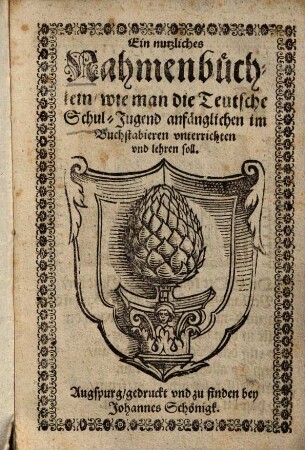 Ein nutzliches
Nahmenbüch-
lein/ wie man die Teutsche
Schul-Jugend anfänglichen im
Buchstabieren vnterrichten
vnd lehren soll.
Augspurg/gedruckt vnd zu finden bey
Johannes Schönigk.